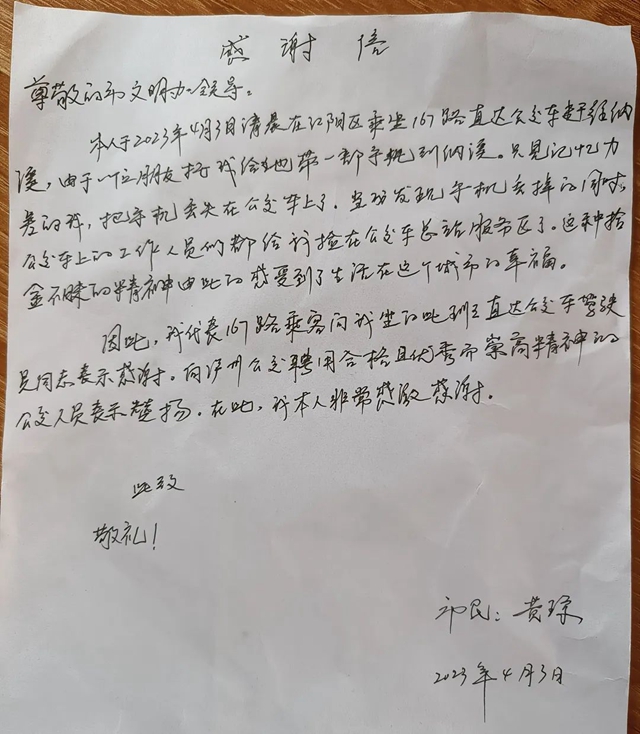 感谢信
尊敬的市文明办领导:
本人于2023年4月3日清晨在江阳区乘坐167路直达公交车赶往纳
溪,由于一位朋友托我给他带一部手机到纳溪。只见记忆力
差的我,把手机丢失在公交车上了。当我发现手机丢掉的同时,
公交车上的工作人员们都给我捡在公交车总站服务区了。这种拾
金不昧的精神由此的感受到了生活在这个城市的幸福。
因此,我代表167路乘客向我坐的此班直达公交车驾驶
员同志表示感谢。向泸州公交聘用合格且优秀而崇高精神的
公交人员表示赞扬。在此,我本人非常感激感谢。
此致
敬礼!
市民:黄琼
2023年4月3日